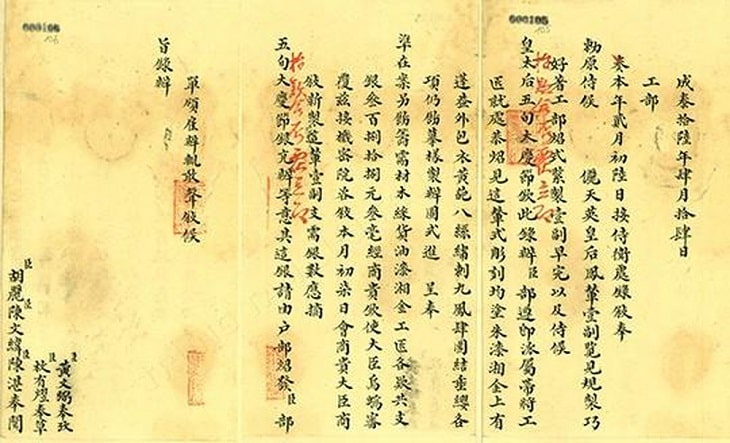 成泰拾陸年肆月拾肆日
工部
奏本年貳月初陸日接侍衛處錄敘奉
勅原侍候 儷天英皇后鳳輦壹副覽見規製巧
好著工部炤式製壹副早完以及侍候
皇太后五旬大慶節欽此錄辦臣部遵卽派屬將工
匠就處恭炤見這輦式彫刻均塗朱漆湘金上有
蓬盖外包衣黃八絲繡刺九鳳肆圍結重纓各
項仍飭摹樣製辦圖式進 呈奉
準在案另飭籌需材木線貨油漆湘金工匠各款共支
銀叄百捌拾捌元叄毫經商貴欽使大臣烏審
覆茲接機密院咨敘本月初柒日會商貴大臣商
敘新製這輦壹副支需銀數應摘
五旬大慶節銀充辦等意具這銀請由戶部炤發臣部
單領雇辦輒敢聲敘候
旨錄辦
臣黃文弼奉攷
臣枚有燿奉草
臣胡麗臣陳文緯臣陳湛奉閱